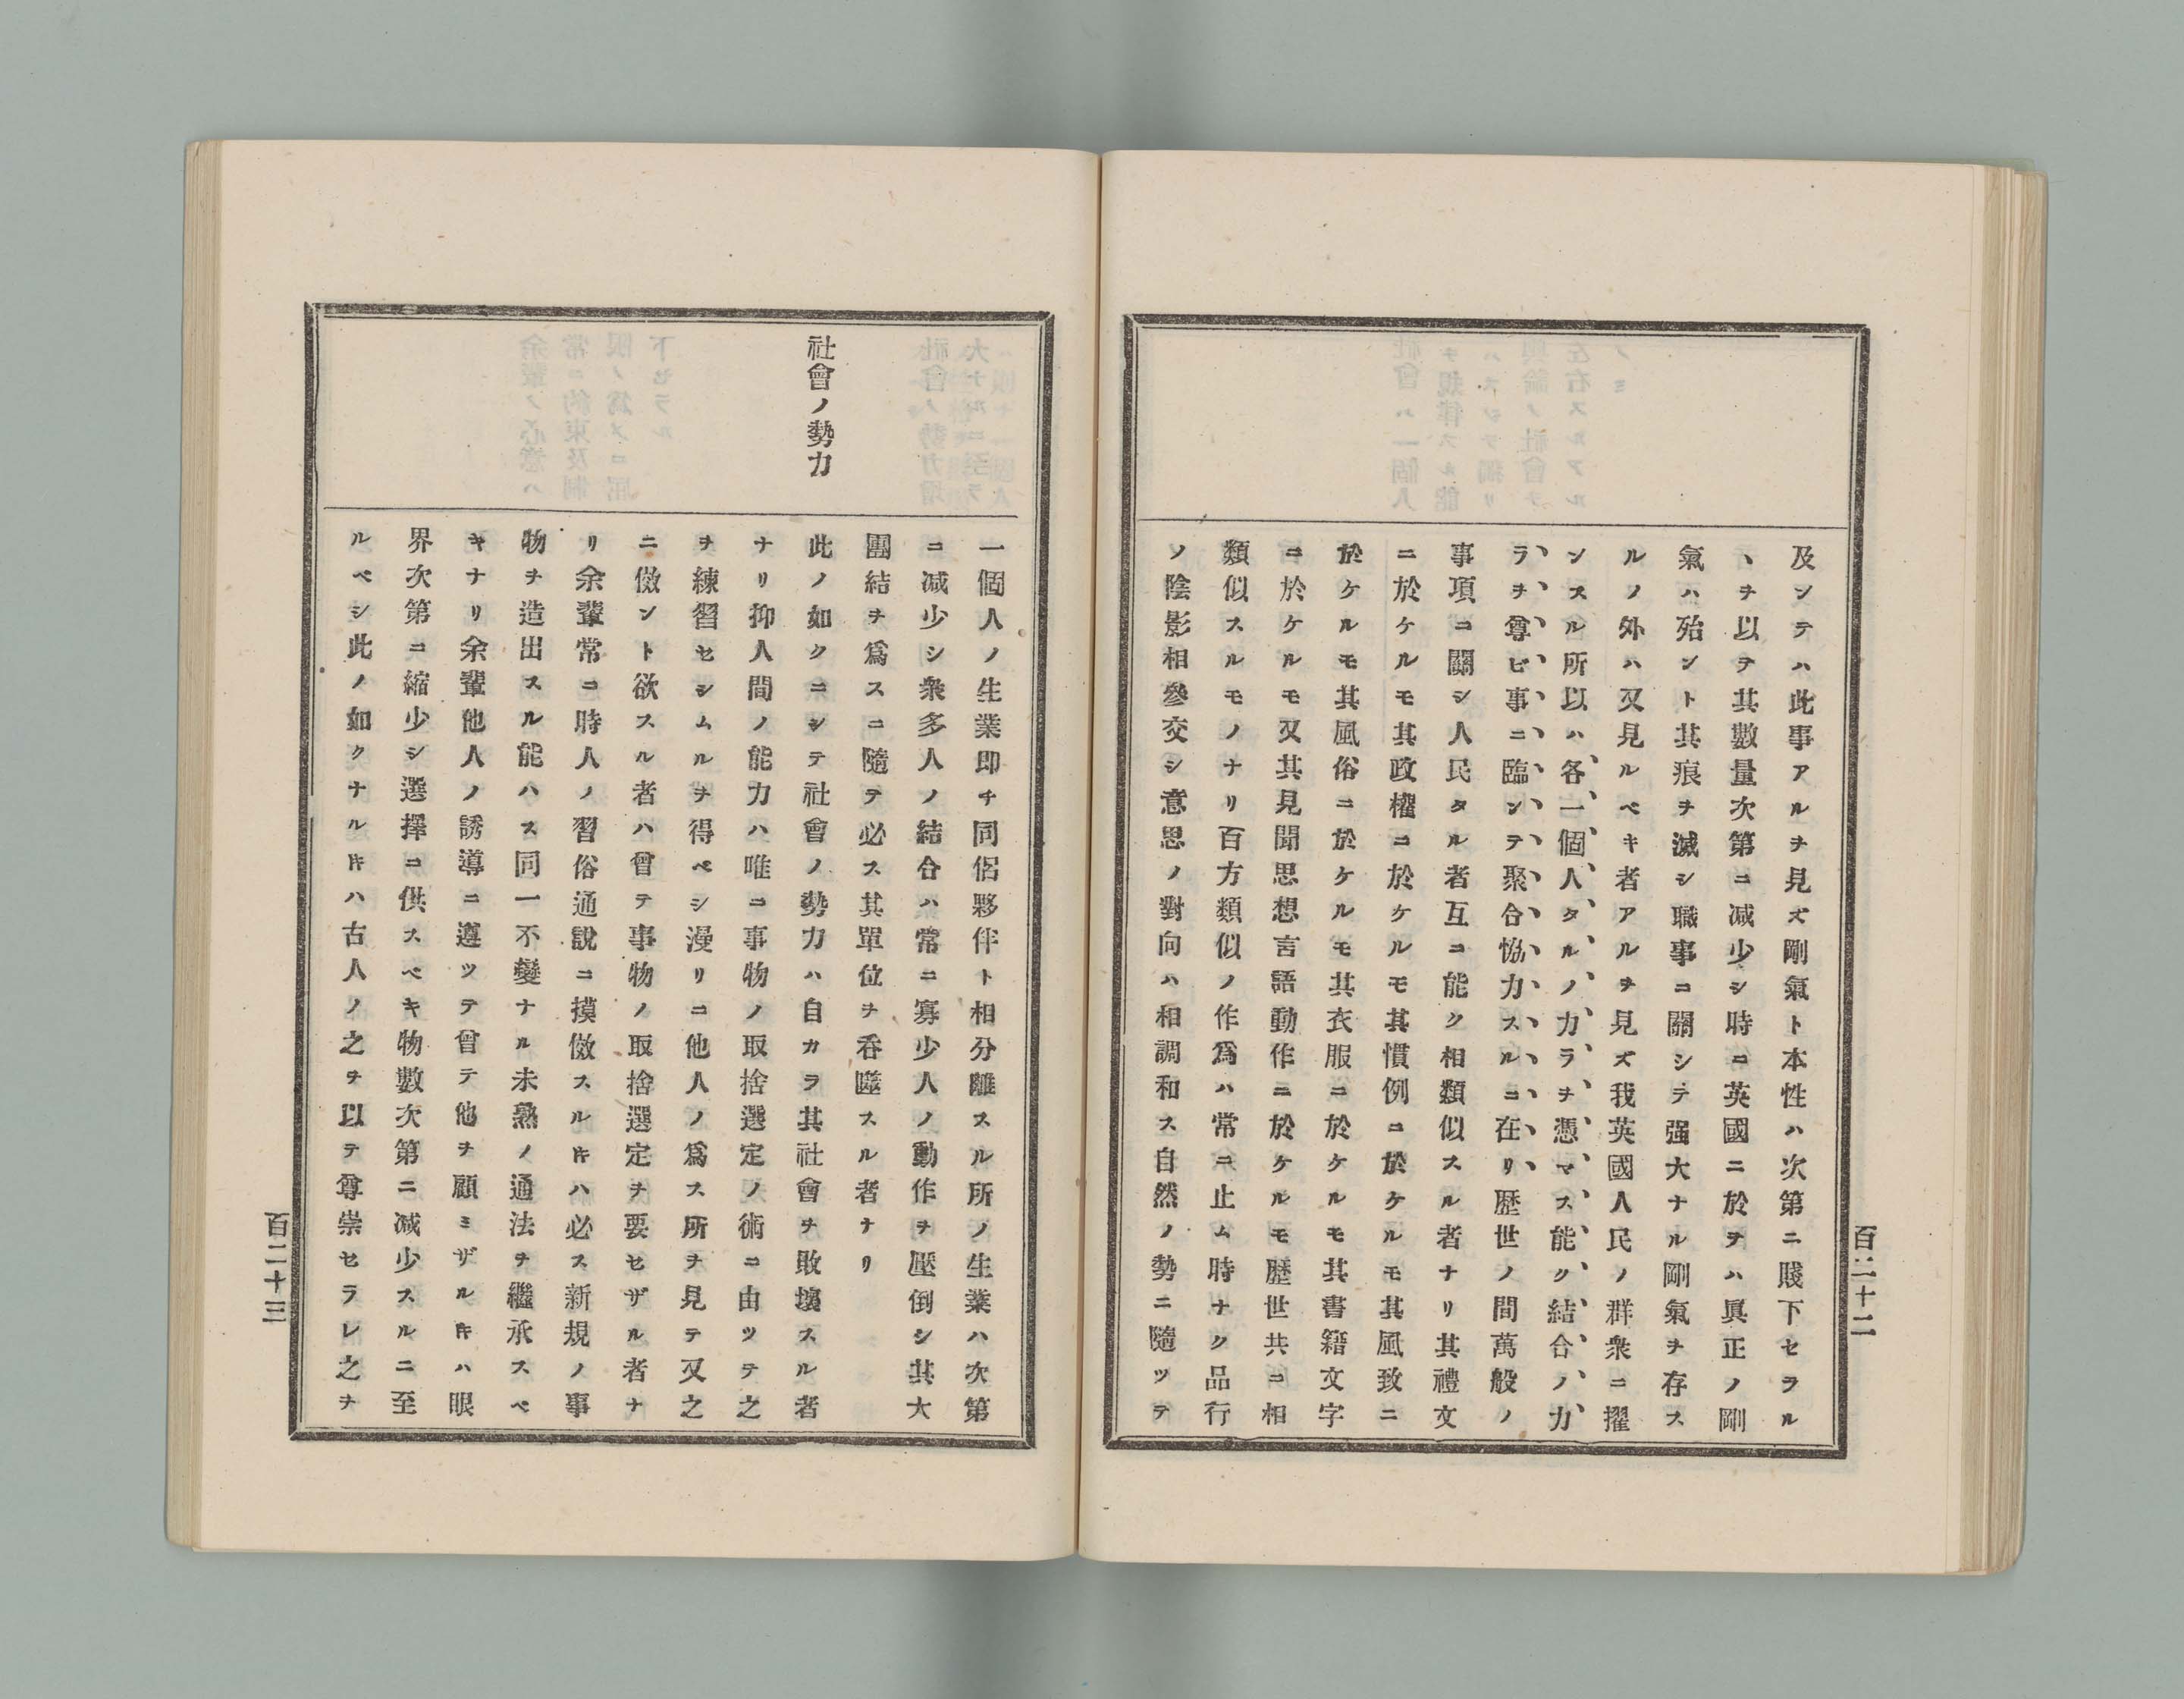 及ンテハ此事アルヲ見ズ剛氣ト本性ハ次第ニ賤下セラル
ヽヲ以テ其數量次第ニ减少シ時ニ英國ニ於テハ眞正ノ剛
氣ハ殆ント其痕ヲ滅シ職事ニ關シテ强大ナル剛氣ヲ存ス
ルノ外ハ又見ルベキ者アルヲ見ズ我英國人民ノ群衆ニ擢
ンスル所以ハ各一個人タルノ力ラヲ憑マス能ク結合ノ力
ラヲ尊ビ事ニ臨ンテ聚合恊力スルニ在リ歷世ノ間萬般ノ
事項ニ關シ人民タル者互ニ能ク相類似スル者ナリ其禮文
ニ於ケルモ其政權ニ於ケルモ其慣例ニ於ケルモ其風致ニ
於ケルモ其風俗ニ於ケルモ其衣服ニ於ケルモ其書籍文字
ニ於ケルモ又其見聞思想言語動作ニ於ケルモ歷世共ニ相
類似スルモノナリ百方類似ノ作爲ハ常ニ止ム時ナク品行
ノ陰影相參交シ意思ノ對向ハ相調和ス自然ノ勢ニ隨ツテ
百二十二
社會ノ勢力
一個人ノ生業即チ同侶夥伴ト相分離スル所ノ生業ハ次第
ニ减少シ衆多人ノ結合ハ常ニ寡少人ノ動作ヲ壓倒シ其大
團結ヲ爲スニ隨テ必ス其單位ヲ呑噬スル者ナリ
此ノ如クニシテ社會ノ勢力ハ自カラ其社會ヲ敗壞スル者
ナリ抑人間ノ能力ハ唯ニ事物ノ取捨選定ノ術ニ由ツテ之
ヲ練習セシムルヲ得ベシ漫リニ他人ノ爲ス所ヲ見テ又之
ニ傲ント欲スル者ハ曾テ事物ノ取捨選定ヲ要セザル者ナ
リ余輩常ニ時人ノ習俗通說ニ摸傚スル𪜈ハ必ス新規ノ事
物ヲ造出スル能ハス同一不變ナル未熟ノ通法ヲ繼承スベ
キナリ余輩他人ノ誘導ニ遵ツテ曾テ他ヲ顧ミザルキハ眼
界次第ニ縮少シ選擇ニ供スベキ物數次第ニ减少スルニ至
ルベシ此ノ如クナル𪜈ハ古人ノ之ヲ以テ尊崇セラレ之ヲ
百二十三